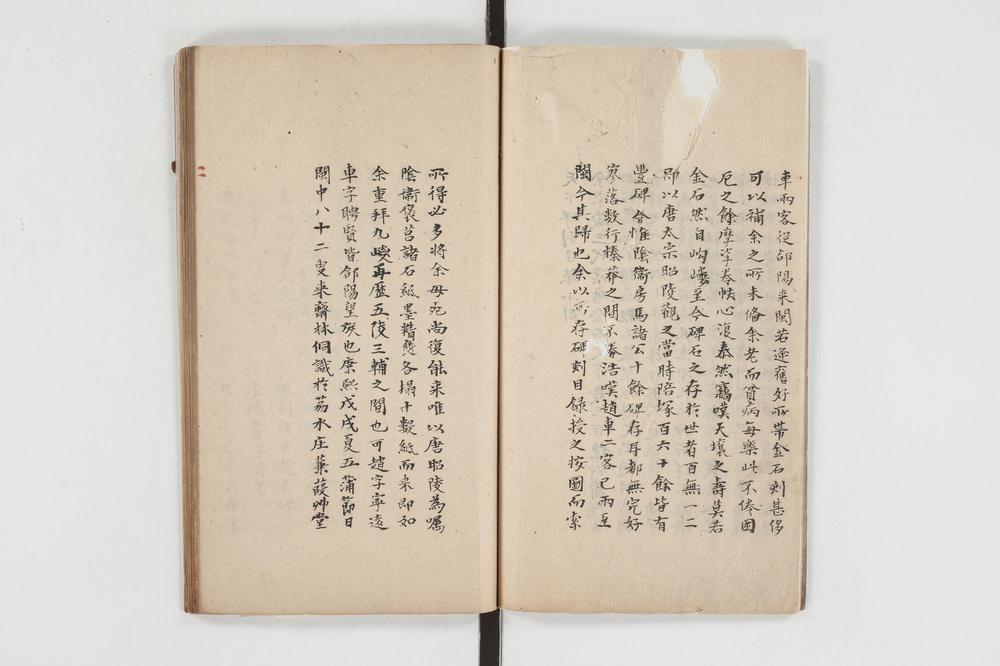 車兩客從郃陽來閩若逢舊好所帶金石刻甚侈
可以補余之所未備余老而貧病每樂此不倦困
厄之餘摩挲卷帙心復泰然竊嘆天壤之壽莫若
金石然自岣嶁至今碑石之存於世者百無一二
即以唐太宗昭陵觀之當時陪塚百六十餘皆有
豐碑今惟陰衞房馬諸公十餘碑存耳都無完好
寥落數行榛莽之間不勝浩嘆趙車二客已兩至
閩今其歸也余以所存碑刻目錄授之按圖而索
所得必多將余毋死尚復能來唯以唐昭陵為囑
陰衞褒莒諸石紙墨精雙各搨十數紙而來即如
余重拜九嵕再歷五陵三輔之間也可趙字寧遠
車字聘賢皆郃陽望族也康熙戊戌夏五蒲節日
閩中八十二叟來齋林侗識於荔水庄蒹葭艸堂